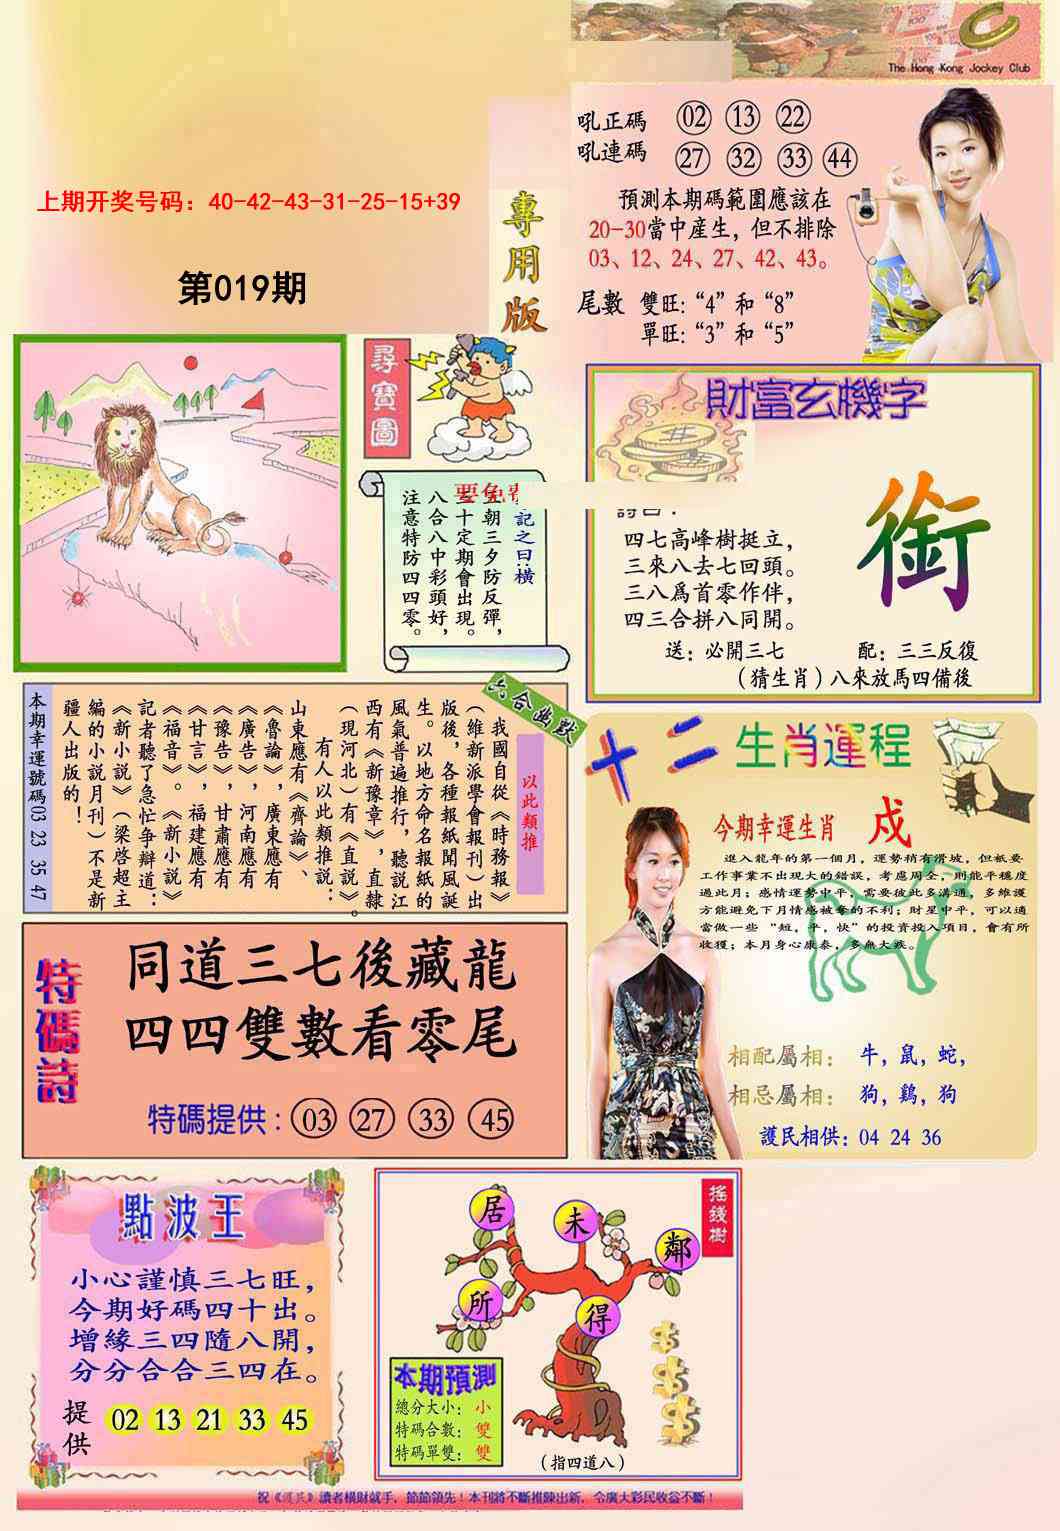 The Hong Kong Jockey Club
上期开奖号码：40-42-43-31-25-15+39
第019期
專用版
吼正碼 02 13 22
吼連碼 27 32 33 44
預測本期碼範圍應該在
20-30當中産生，但不排除
03、12、24、27、42、43。
尾數 雙旺:“4”和“8”
單旺:“3”和“5”
尋寶圖
記之曰:橫
三朝三夕防反彈，
二十定期會出現。
八合八中彩頭好，
注意特防四四零。
財富玄機字
四七高峰樹挺立，
三來八去七回頭。
三八爲首零作伴，
四三合拼八同開。
衛
送：必開三七 配：三三反復
（猜生肖）八來放馬四備後
六合幽默
以此類推
我國自從《時務報》
（維新派學會報刊）出
版後，各種報紙聞風誕
生。以地方命名報紙的
風氣普遍推行，聽説江
西有《新豫章》，直隸
（現河北）有《直説》。
有人以此類推説：
山東應有《齊論》、
《魯論》，廣東應有
《廣告》，河南應有
《豫告》，甘肅應有
《甘言》，福建應有
《福音》。《新小説》
記者聽了急忙争辯道：
《新小説》（梁啓超主
編的小説月刊）不是新
疆人出版的！
本期幸運號碼03 23 35 47
十二生肖運程
今期幸運生肖 戍
進入龍年的第一個月，運勢稍有滑坡，但衹要
工作事業不出現大的錯誤，考慮周全，則能平穩度
過此月；感情運勢中平，需要彼此多溝通，多維護
方能避免下月情感被奪的不利；財星中平，可以適
當做一些“短，平，快”的投資投入項目，會有所
收獲；本月身心康泰，多無大疾。
相配屬相：牛，鼠，蛇，
相忌屬相：狗，鷄，狗
護民相供：04 24 36
特碼詩
同道三七後藏龍
四四雙數看零尾
特碼提供：03 27 33 45
點波王
小心謹慎三七旺，
今期好碼四十出。
增緣三四隨八開，
分分合合三四在。
提供 02 13 21 33 45
搖錢樹
居 未 鄰
所 得
本期預測
總分大小：小
特碼合數：雙
特碼單雙：雙
（指四道八）
祝《護民》讀者橫財就手，節節領先！本刊將不斷推陳出新，令廣大彩民收益不斷！